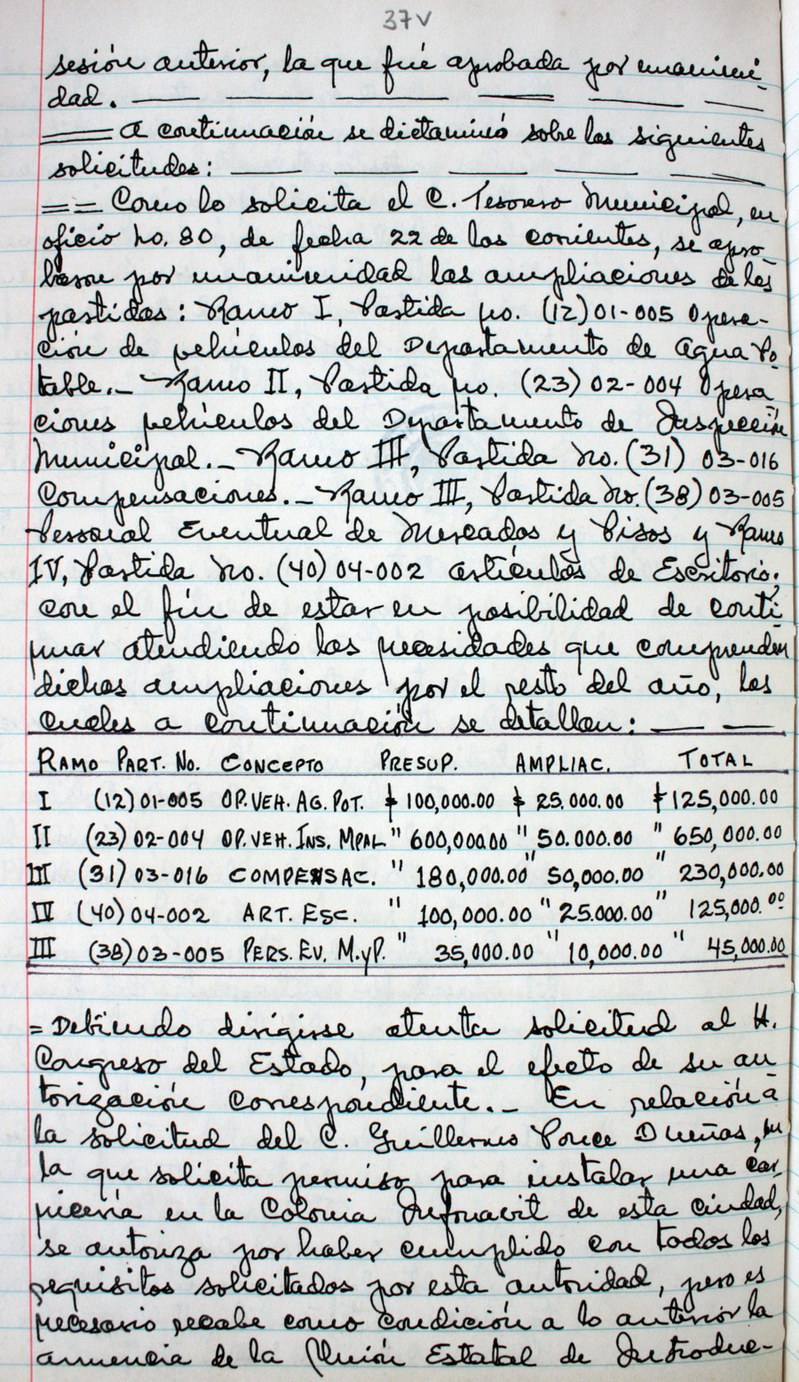 37v
sesión anterior, la que fué aprobada por unanimi-
dad. — — — — — —
== A continuación se dictaminó sobre las siguientes
solicitudes: — — — — —
== Como lo solicita el C. Tesorero Municipal, en
oficio No. 80, de fecha 22 de los corrientes, se apro-
baron por unanimidad las ampliaciones de las
partidas: Ramo I, Partida no. (12) 01-005 Opera-
ción de vehículos del Departamento de Agua Po-
table.- Ramo II, Partida no. (23) 02-004 Opera
ciones vehículos del Departamento de Inspección
Municipal.- Ramo III, Partida No. (31) 03-016
Compensaciones.- Ramo III, Partida No. (38) 03-005
Personal Eventual de Mercados y Pisos y Ramo
IV, Partida No. (40) 04-002 artículos de Escritorio;
con el fin de estar en posibilidad de conti-
nuar atendiendo las necesidades que comprenden
dichas ampliaciones por el resto del año, las
cuales a continuación se detallan: — —
RAMO PART. No. CONCEPTO PRESUP. AMPLIAC. TOTAL
I (12) 01-005 OP. VEH. AG. POT. $ 100,000.00 $ 25.000.00 $ 125,000.00
II (23) 02-004 OP. VEH. INS. MPAL " 600,000.00 " 50.000.00 " 650,000.00
III (31) 03-016 COMPENSAC. " 180,000.00 " 50,000.00 " 230,000.00
IV (40) 04-002 ART. ESC. " 100,000.00 " 25.000.00 " 125,000.00
III (38) 03-005 PERS. EV. M.yP. " 35,000.00 " 10,000.00 " 45,000.00
= Debiendo dirigirse atenta solicitud al H.
Congreso del Estado, para el efecto de su au-
torización correspondiente.- En relación a
la solicitud del C. Guillermo Ponce Dueñas, en
la que solicita permiso para instalar una car-
nicería en la Colonia Infonavit de esta ciudad,
se autoriza por haber cumplido con todos los
requisitos solicitados por esta autoridad, pero es
necesario recabe como condición a lo anterior la
anuencia de la Unión Estatal de Introduc-